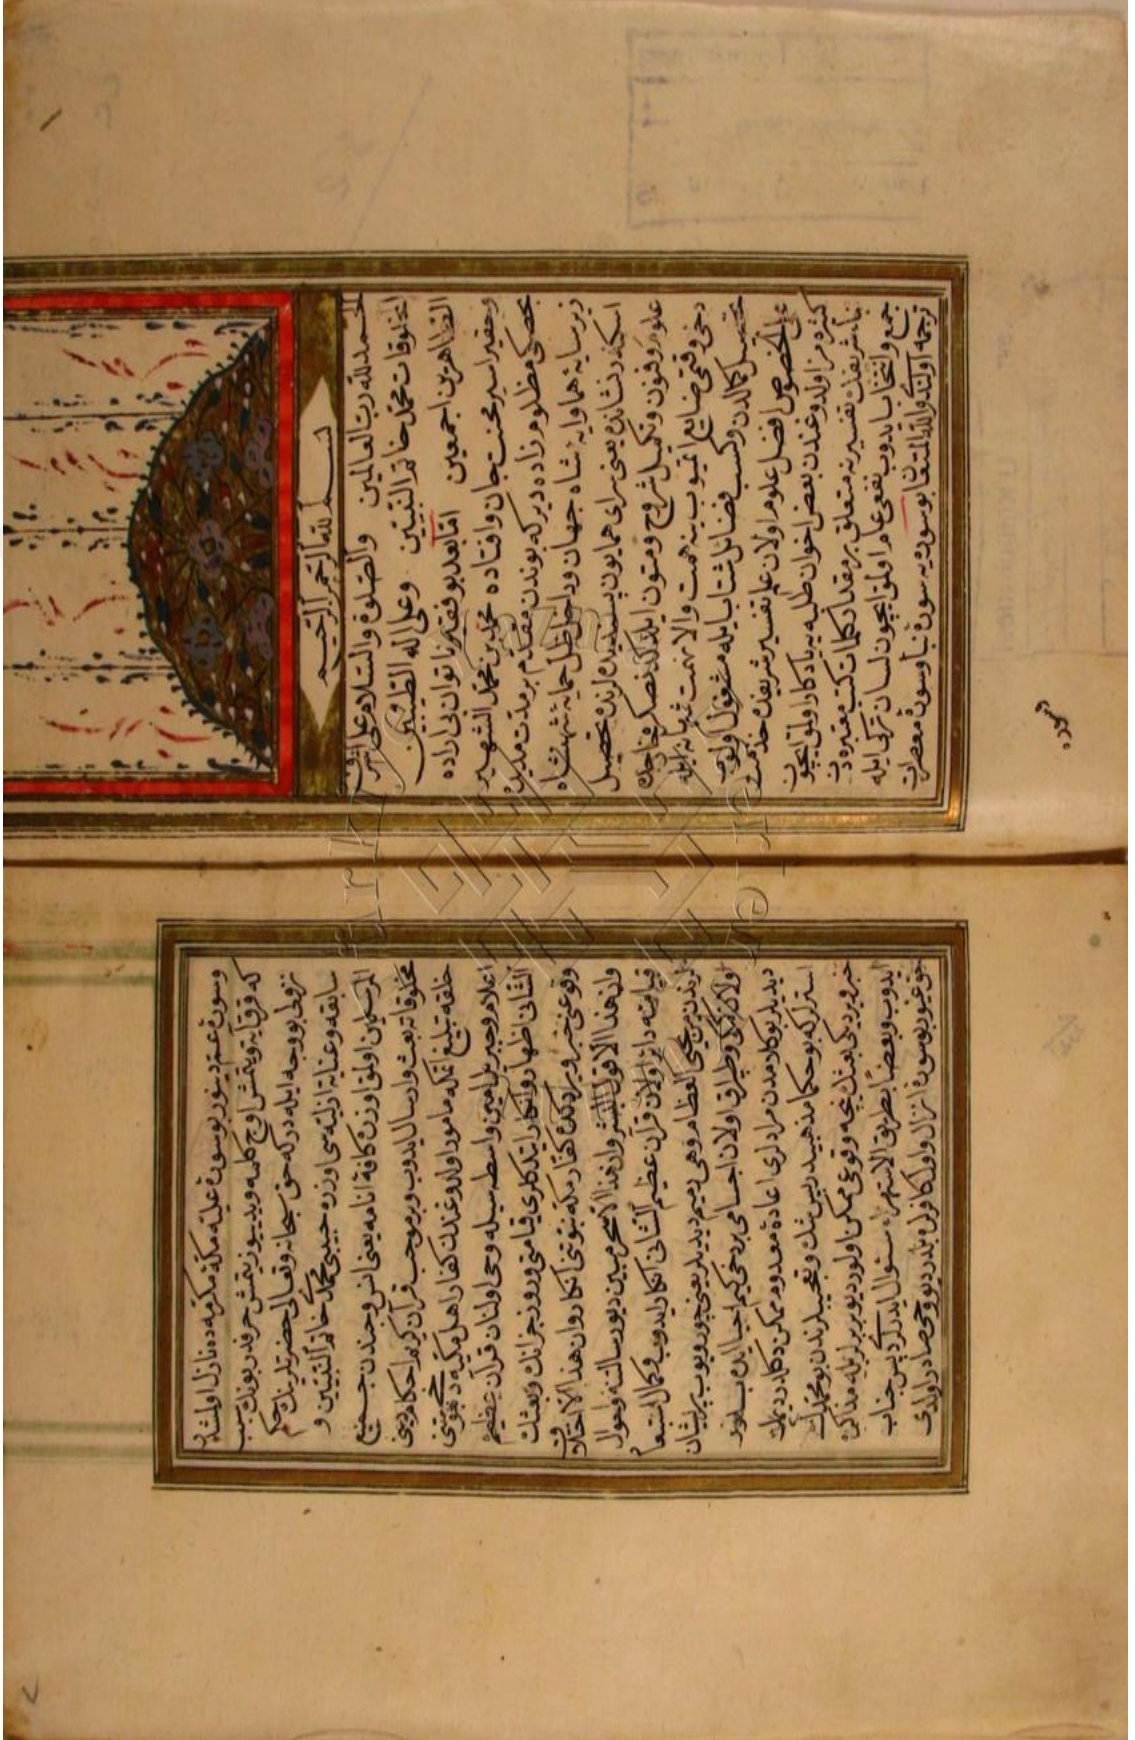 بسم الله الرحمن الرحيم
الحمد لله رب العالمين والصلوة والسلام على اشرف
المخلوقات محمد خاتم النبيين وعلى اله الطيبين
الطاهرين اجمعين اما بعد بو فقير ناتوان بى اراده
وحقير اسير محنت جان وافتاده محمد بن محمد الشهير
بخصكى مظلوم زاده دير كه بوندن مقدم بر مدت مديد
زير سايۀ همايۀ شاه جهان وداخل ظل حمايۀ شهنشاه
اسكندر نشانده يعنى سراى همايون پسنديده لرنده تحصيل
علوم وفنون وتكميل شروح ومتون ايلدكدنصكره خارجده
دخى وقتى ضايع اتميوب نه همت والا نهمت ايله
تحصيل كمالدن وكسب فضائل شتا بايله مشغول اولوب
على الخصوص افضل علوم اولان علم تفسير شريفه خدمت
كثره مزاولدوغندن بعض اخوان طلبه يه يادكار اولمق ايچون
نبأ شريفك تفسيرنه متعلق بر مقدار كلمات كتب معتبره دن
جمع وانتخاب ايدوب نفعى عام اولمق ايچون لسان تركى ايله
ترجمه اولندى والله المستعان بو سوره يه سورۀ نبأ وسورۀ معصرات
وسورۀ عم دينور بو سورۀ عليه مكۀ مكرمه ده نازل اولمشدر
كه قرق آيه ويتمش اوچ كلمه ويديوز يتمش حرفدر بونك سبب
نزولى بو وجه ايله در كه حق سبحانه وتعالى حضرتلرينك حكم
سابقه وعنايۀ ازليه سى اوزره حبيبى محمد خاتم النبيين و
المرسلين اولمق اوزره كافۀ انامه يعنى انس وجندن جميع
مخلوقاته بعث وارسال ايدوب وبر موجب قرآن كريم احكام دينى
خلقه تبليغ اتمكه مامور اولدوغندن كفار اهل مكيه دعوتنى
اعلام وجبريل امين واسطه سيله وحى اولنان قرآن عظيم
الشانى اظهار وانكار ايتدكلرى قيامتى وروز جزانك وبعثك
وقوعنى خبر ويردكده كفار مكه نبوتنى انكار وان هذا الا اختلاق
وان هذا الا قول البشر وان هذا الا سحر مبين ديو رسالتنه واحوال
قيامته دائر اولان قرآن عظيم الشانى انكار ايدوب وكمال استبعاد
لرندن من يحيى العظام وهى رميم ديديلر يعنى چوريوب پريشان
اولان كميك وطپراق اولان اجسامى بر دخى كيم احيا ايده بيلور
ديديلر بو كلامدن مرادلرى اعادۀ معدوم ممكن دكلدر ديمك
استرلر كه بو حكما مذهبيدر پس شك وتعجبلرندن بو محمدك
خبر ويرديكى بعثك نيجه وقوعى ممكن اولور ديو بربرلريله مذاكره
ايدوب وبعضا بطريق الاستهزاء سئوال ايدرلردى پس جناب
حق غيور بو سوره انزال واول كافرلرى بند ديو وحى صادر اولدى